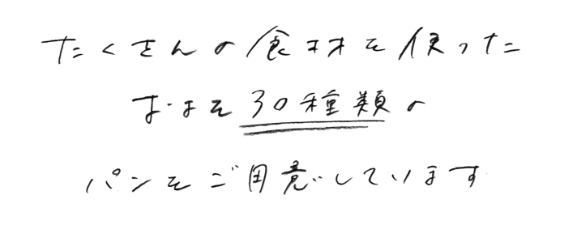 たくさんの食材を使った
およそ30種類の
パンをご用意しています